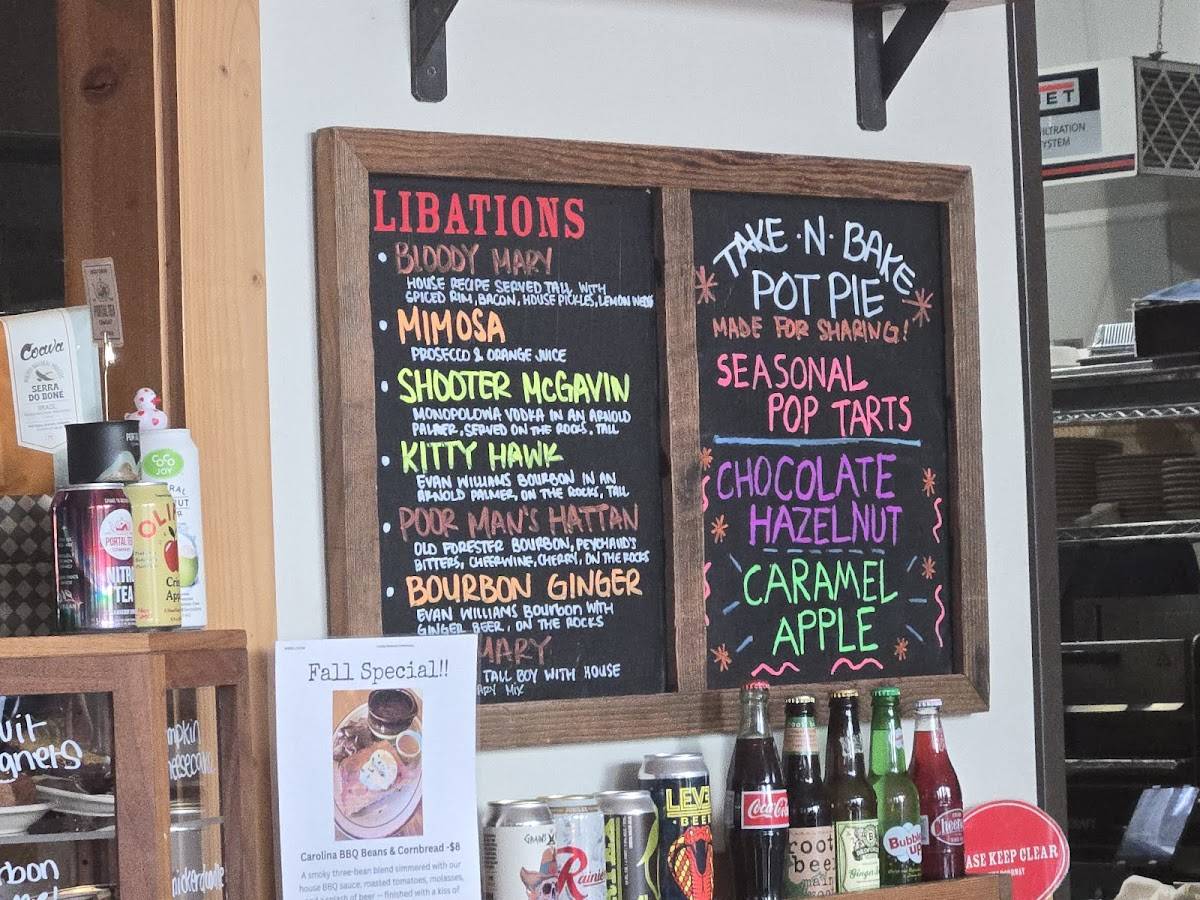 LIBATIONS
BLOODY MARY
HOUSE RECIPE SERVED TALL WITH
SPICED RIM, BACON, HOUSE PICKLES, LEMON WEDGE
MIMOSA
PROSECCO & ORANGE JUICE
SHOOTER McGAVIN
MONOPOLOWA VODKA IN AN ARNOLD
PALMER, SERVED ON THE ROCKS. TALL
KITTY HAWK
EVAN WILLIAMS BOURBON IN AN
ARNOLD PALMER, ON THE ROCKS, TALL
POOR MAN'S HATTAN
OLD FORESTER BOURBON, PEYCHAUD'S
BITTERS, CHEERWINE, CHERRY, ON THE ROCKS
BOURBON GINGER
EVAN WILLIAMS BOURBON WITH
GINGER BEER, ON THE ROCKS
MARY
TALL BOY WITH HOUSE
ARY MIX
TAKE ·N· BAKE
POT PIE
MADE FOR SHARING!
SEASONAL
POP TARTS
CHOCOLATE
HAZELNUT
CARAMEL
APPLE
ET
ILTRATION
YSTEM
PORTAL TEA
Coava
SERRA
DO BONE
BRAZIL
COCO
JOY
PORTAL TEA
NITRO
TEA
OLI
Cris
App
Fall Special!!
Carolina BBQ Beans & Cornbread -$8
A smoky three-bean blend simmered with our
house BBQ sauce, roasted tomatoes, molasses,
and a splash of beer – finished with a kiss of
uit
gners
rbon
mpkin
eesecake
nickerdoodle
Rainier
LEVE
BEER
Coca-Co
root
beer
Ginger
Bubble
up
Cheer
ASE KEEP CLEAR
DOORWAY